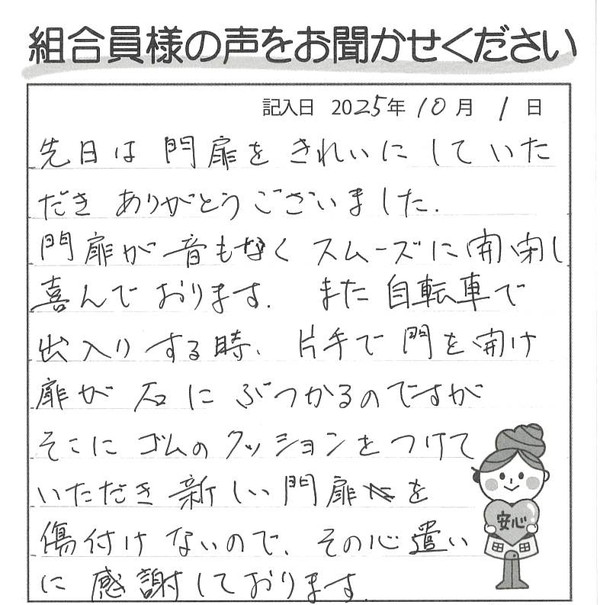 組合員様の声をお聞かせください
記入日 2025年10月1日
先日は門扉をきれいにしていた
だきありがとうございました.
門扉が音もなくスムーズに開閉し
喜んでおります. また自転車で
出入りする時、片手で門を開け
扉が石にぶつかるのですが
そこにゴムのクッションをつけて
いただき新しい門扉を
傷付けないので、その心遣い
に感謝しております.
安心